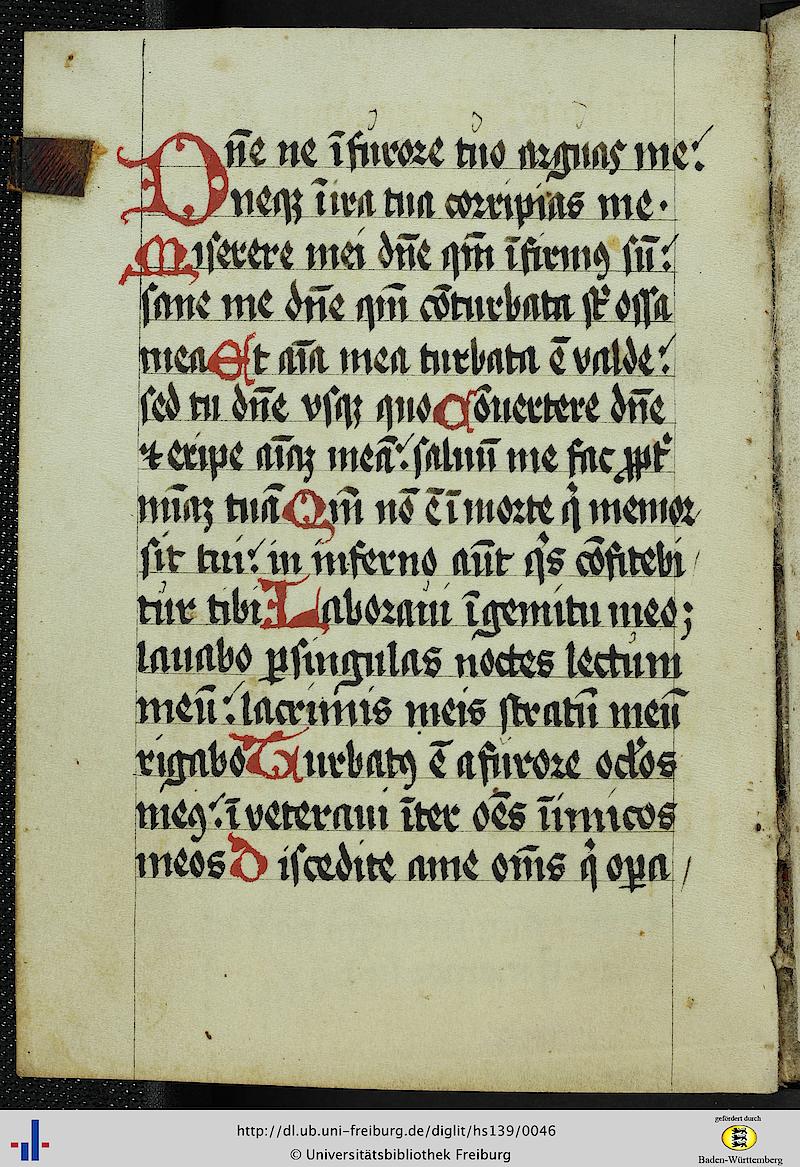 Dn̄e ne ī furore tuo arguas me:
neqꝫ ī ira tua corripias me·
Miserere mei dn̄e qm̄ īfirmꝰ sū:
sane me dn̄e qm̄ cōturbata st̄ ossa
mea Et aīa mea turbata ē valde:
sed tu dn̄e vsqꝫ quo Cōuertere dn̄e
⁊ eripe aīaꝫ meā: saluū me fac ꝓpt̄
mīaꝫ tuā Qm̄ nō ē ī morte q̇ memor
sit tui: in inferno aūt q̇s cōfitebi
tur tibi Laboraui ī gemitu meo;
lauabo ꝑ singulas noctes lectum
meū: lacrimis meis stratū meū
rigabo Turbatꝰ ē a furore oclos
meꝰ: īveteraui īter oēs īimicos
meos Discedite a me om̄s q̇ oꝑa
http://dl.ub.uni-freiburg.de/diglit/hs139/0046
© Universitätsbibliothek Freiburg
gefördert durch
Baden-Württemberg